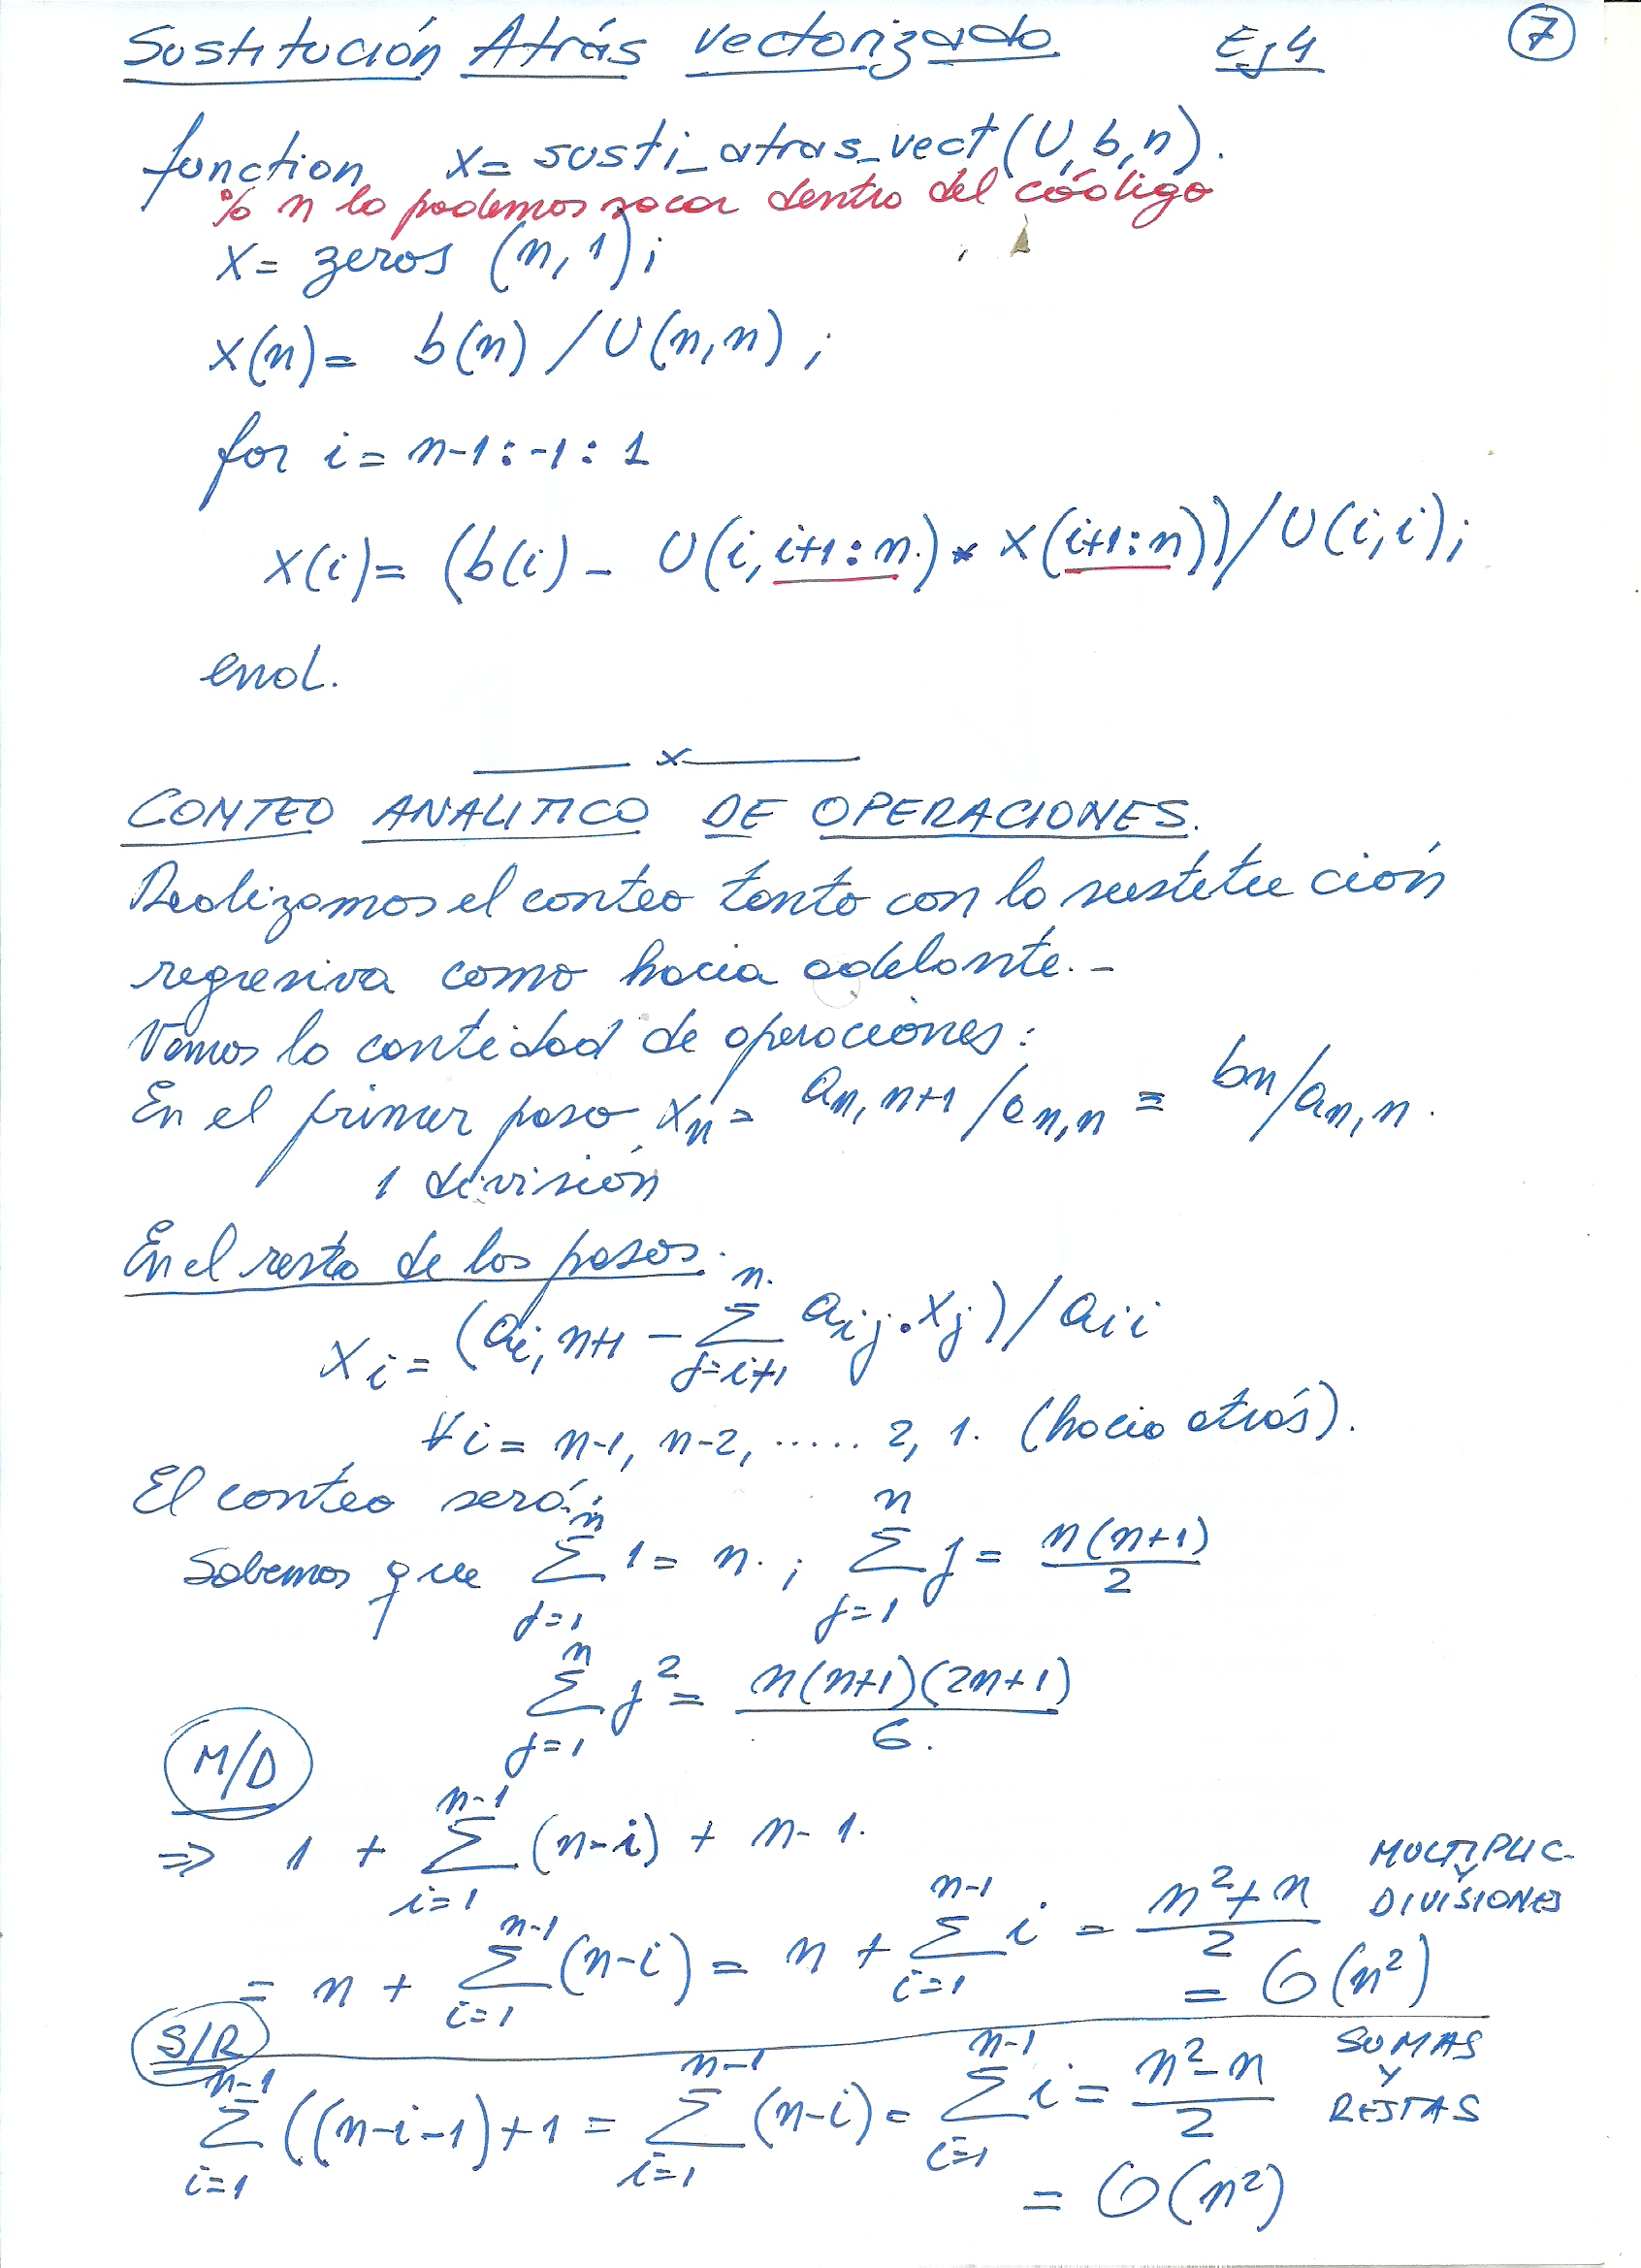 Sustitución Atrás vectorizado Ej 4 7
function x = susti_atras_vect(U, b, n).
% n lo podemos sacar dentro del código
x = zeros (n, 1);
x(n) = b(n) / U(n, n);
for i = n-1 : -1 : 1
x(i) = (b(i) - U(i, i+1 : n.) * x(i+1 : n)) / U(i, i);
end.
x
CONTEO ANALITICO DE OPERACIONES.
Realizamos el conteo tanto con la sustitución
regresiva como hacia adelante.-
Vemos la cantidad de operaciones:
En el primer paso x_n = a_{n, n+1} / a_{n,n} = b_n / a_{n,n}.
1 división
En el resto de los pasos.
x_i = (a_{i, n+1} - Σ_{j=i+1}^{n} a_{ij} . x_j) / a_{ii}
∀ i = n-1, n-2, ..... 2, 1. (hacia atrás).
El conteo será:
Sabemos que Σ_{j=1}^{n} 1 = n. ; Σ_{j=1}^{n} j = n(n+1)/2
Σ_{j=1}^{n} j² = n(n+1)(2n+1)/6.
M/D
⇒ 1 + Σ_{i=1}^{n-1} (n-i) + n-1.
MULTIPLIC. Y DIVISIONES
= n + Σ_{i=1}^{n-1} (n-i) = n + Σ_{i=1}^{n-1} i = (n²+n)/2
= O(n²)
S/R
SUMAS Y RESTAS
Σ_{i=1}^{n-1} ((n-i-1)+1 = Σ_{i=1}^{n-1} (n-i) = Σ_{i=1}^{n-1} i = (n²-n)/2
= O(n²)